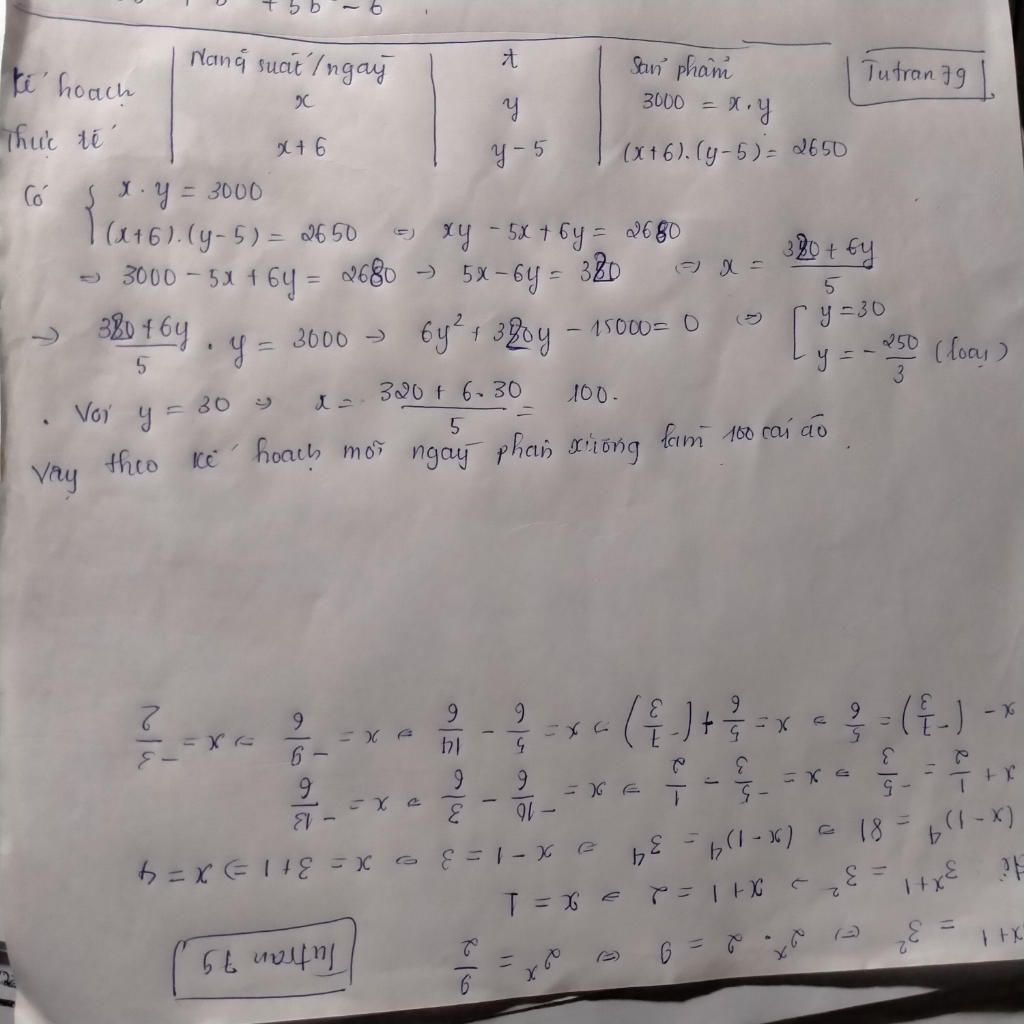 + 5b - 6
Năng suất/ngày t Sản phẩm Tutran79
Kế hoạch x y 3000 = x.y
Thực tế x+6 y-5 (x+6).(y-5) = 2650
Có { x.y = 3000
(x+6).(y-5) = 2650 ⇔ xy - 5x + 6y = 2680
⇒ 3000 - 5x + 6y = 2680 → 5x - 6y = 320 ⇔ x = (320+6y)/5
→ (320+6y)/5 . y = 3000 → 6y² + 320y - 15000 = 0 ⇔ [ y = 30
y = -250/3 (loại)
. Với y = 30 ⇒ x = (320 + 6.30)/5 = 100.
Vậy theo kế hoạch mỗi ngày phân xưởng làm 100 cái áo.
Tutran 79
x+1 = 3² ⇔ 2ˣ.2 = 9 ⇔ 2ˣ = 9/2
3ˣ⁺¹ = 3² → x+1 = 2 ⇒ x = 1
(x-1)⁴ = 81 ⇒ (x-1)⁴ = 3⁴ ⇒ x-1 = 3 ⇒ x = 3+1 ⇒ x = 4
x + 1/2 = -5/3 ⇒ x = -5/3 - 1/2 ⇒ x = -10/6 - 3/6 ⇒ x = -13/6
x - (-7/3) = 5/6 ⇒ x = 5/6 + (-7/3) ⇒ x = 5/6 - 14/6 ⇒ x = -9/6 ⇒ x = -3/2